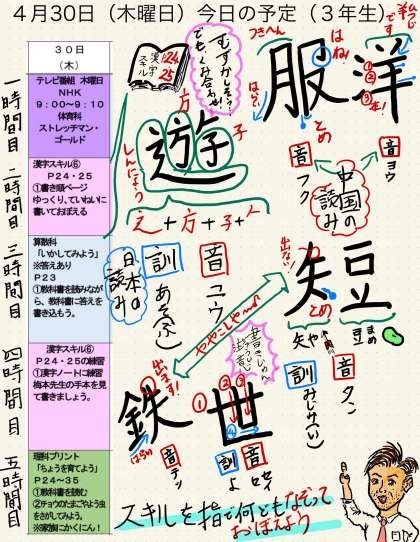 4月30日（木曜日）今日の予定（３年生）
３０日
（木）
一時間目
テレビ番組 木曜日
NHK
９：００～９：１０
体育科
ストレッチマン・
ゴールド
二時間目
漢字スキル⑥
Ｐ２４・２５
①書き順ページ
ゆっくり、ていねいに
書いておぼえる
三時間目
算数科
「いかしてみよう」
※答えあり
Ｐ２３
①教科書を読みなが
ら、教科書に答えを
書き込もう。
四時間目
漢字スキル⑥
Ｐ２４・２５の練習
①漢字ノートに練習
梅本先生の手本を見
て書きましょう。
五時間目
理科プリント
「ちょうを育てよう」
Ｐ２４～３５
①教科書を読む
②チョウのたまごやよう虫
をさがしてみよう。
※家族にかくにん！
漢字
スキル
24
25
むずかしそう
でも、くみ合わせ!
つきへん
服
はね!
はらう
とめ
音
フク
洋
です
①
②
③本!
音
ヨウ
中国の
読み
方
子
しんにょう
遊
え+方+子+
音
ユウ
訓
あそ(ぶ)
日本の
読み
ややこしや～♪
出ない!
短
とめ
矢や
豆
まめ
音
タン
訓
みじか(い)
出ます!
鉄
はらう
音
テツ
書きじゅん
注意
世
①
②
③
④
音
セ セイ
訓
よ
スキルを指で何どもなぞって
おぼえよう